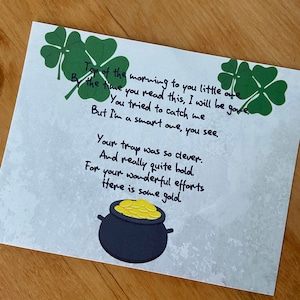 Top of the morning to you little one
By the time you read this, I will be gone.
You tried to catch me
But I'm a smart one, you see.
Your trap was so clever.
And really quite bold
For your wonderful efforts
Here is some gold.